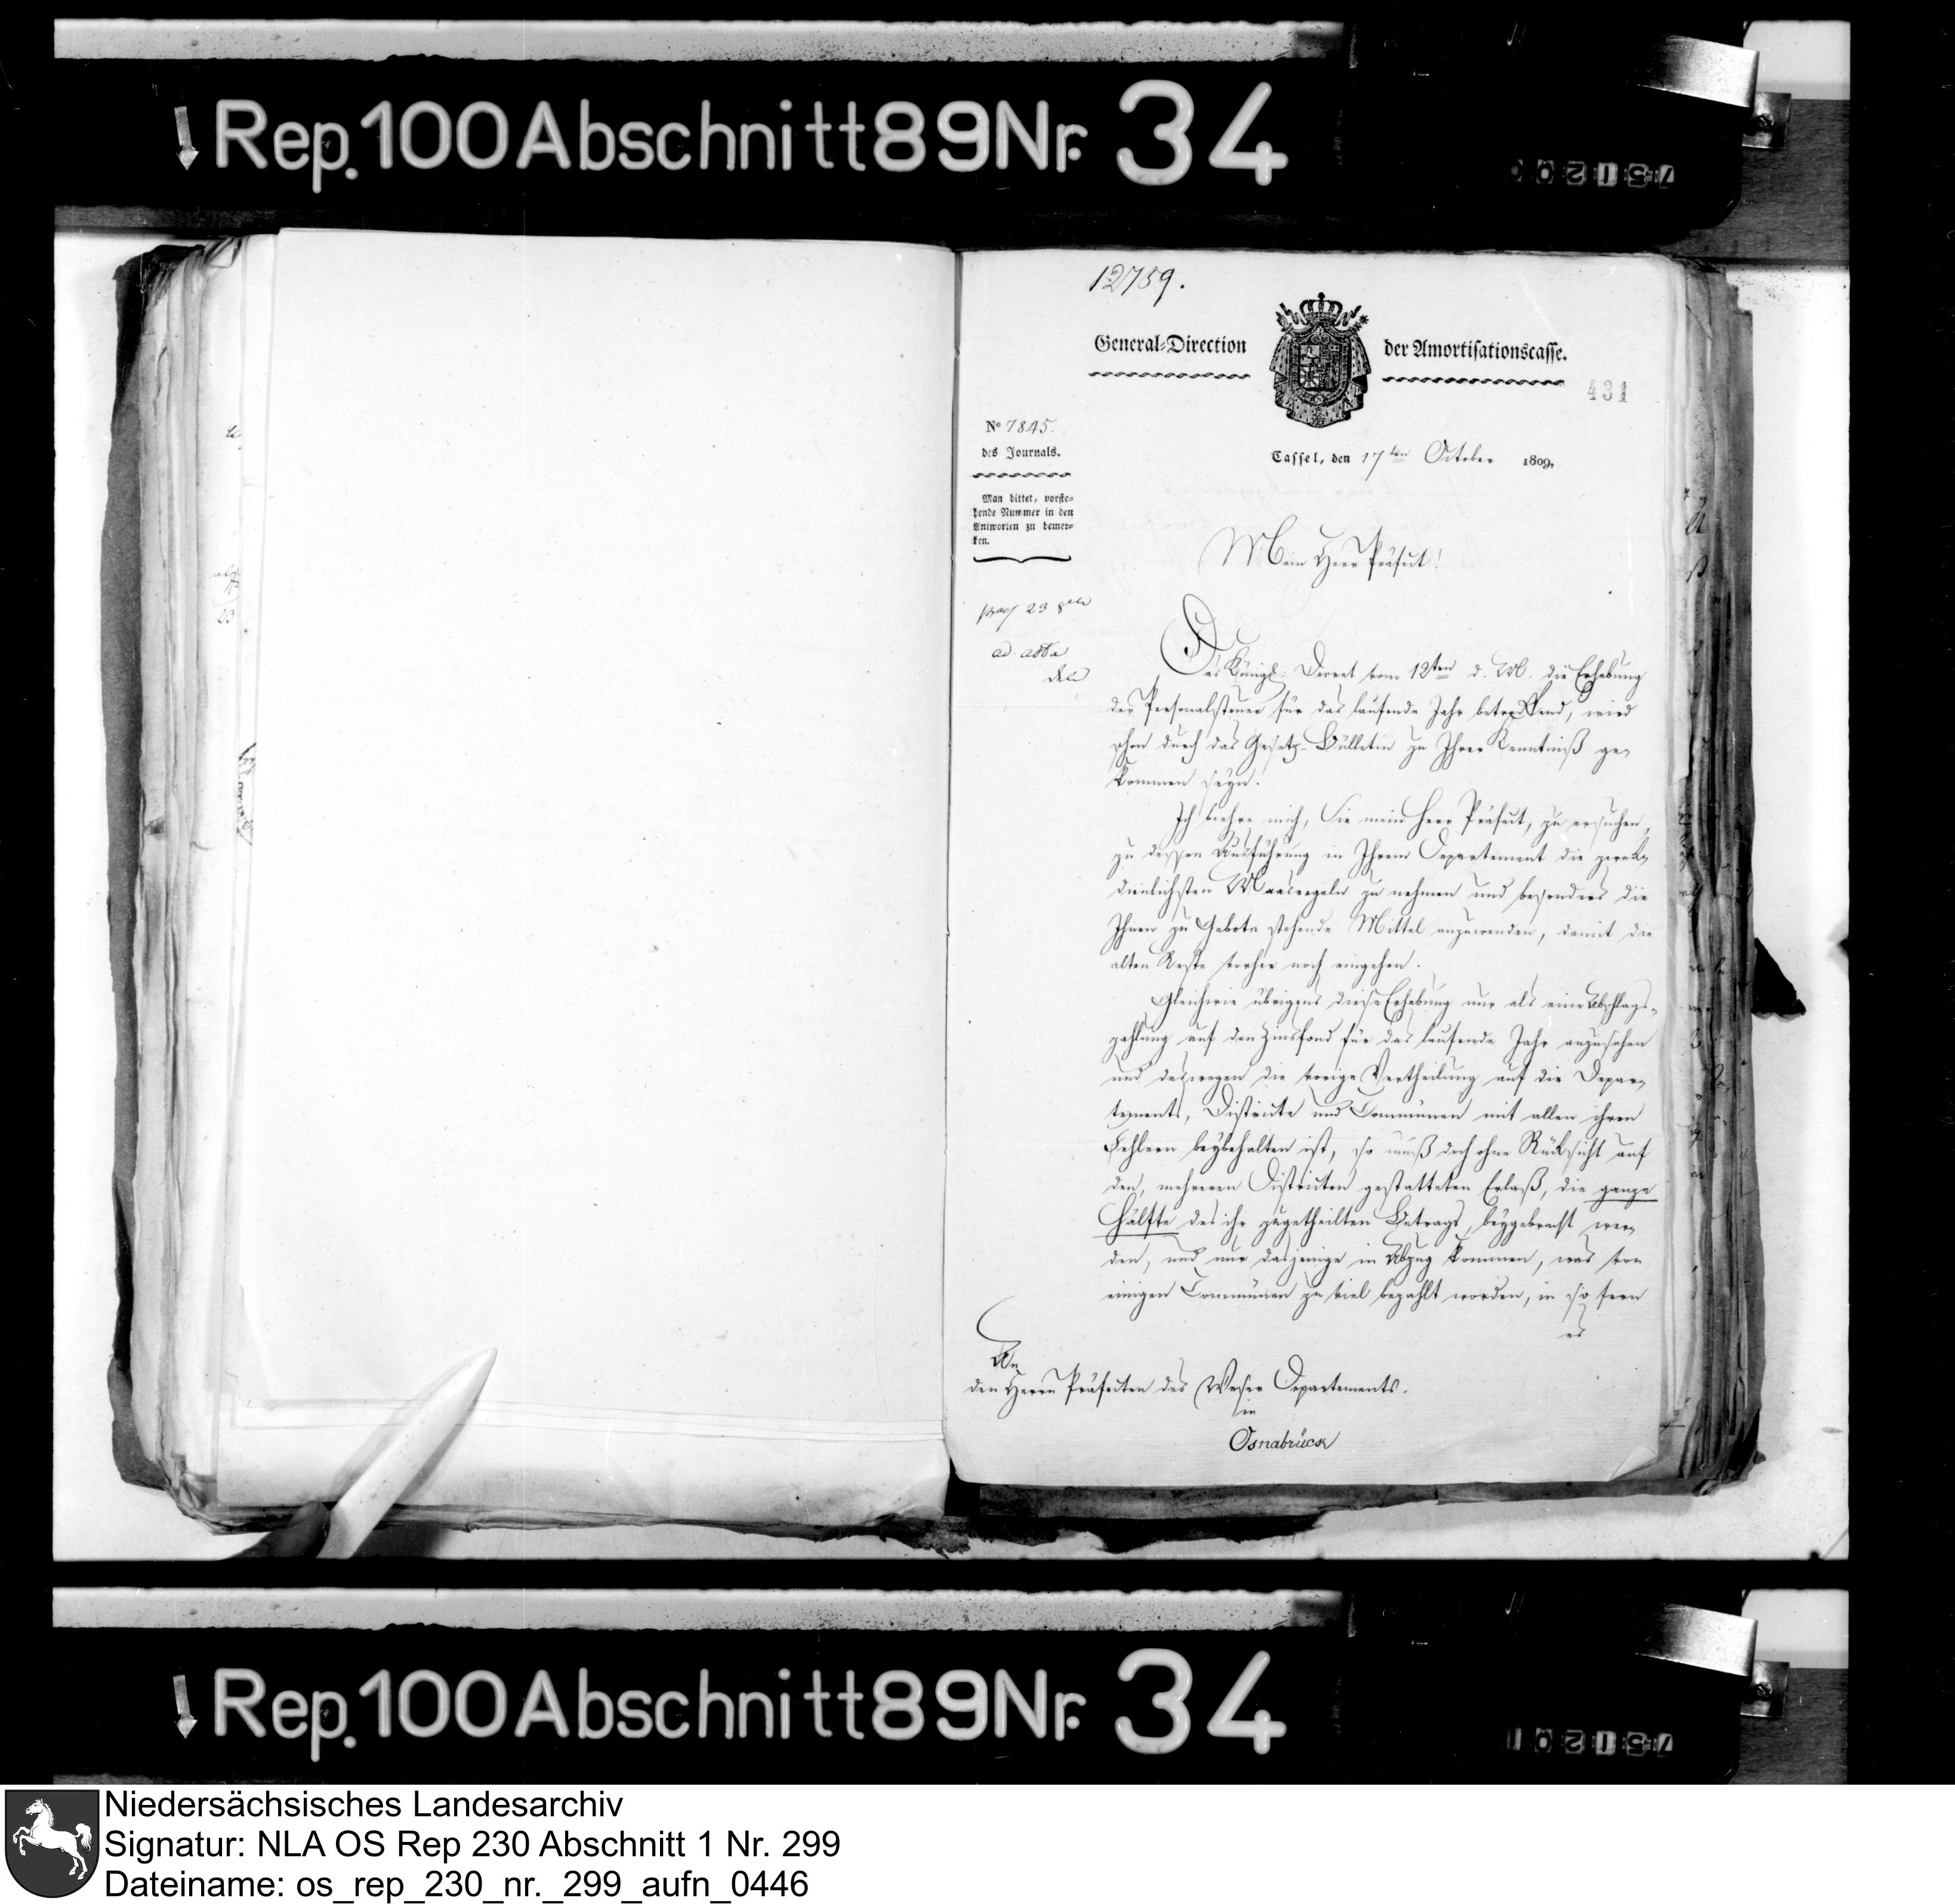 Rep. 100 Abschnitt 89 Nr. 34
12759.
General-Direction der Amortisationscasse.
431
No 7845.
des Journals.
Cassel, den 17ten October 1809,
Man bittet, vorste-
hende Nummer in den
Antworten zu bemer-
ken.
Mein Herr Präfect!
23
ad acta
Das Königl: Decret vom 12ten d. M. die Erhebung
der Personalsteuer für das laufende Jahr betreffend, wird
schon durch das Gesetz-Bülletin zu Ihrer Kenntniß ge-
kommen seyn.
Ich beehre mich, Sie mein Herr Präfect, zu ersuchen,
zu dessen Ausführung in Ihrem Departement die zweck-
dienlichsten Maasregeln zu nehmen und besonders die
Ihnen zu Gebote stehende Mittel anzuwenden, damit die
alten Reste vorher noch eingehen.
Gleichwie übrigens diese Erhebung nur als eine Abschlags-
zahlung auf den Zinsfond für das laufende Jahr anzusehen
und deswegen die vorige Vertheilung auf die Depar-
tements, Districte und Communen mit allen ihren
Fehlern beybehalten ist, so muß doch ohne Rücksicht auf
den, mehreren Districten gestatteten Erlaß, die ganze
Hälfte des ihr zugetheilten Betrags, beygebracht wer-
den, und nur dasjenige in Abzug kommen, was von
einigen Communen zu viel bezahlt worden, in so fern
es
An
den Herrn Präfecten des Weser Departements.
in
Osnabrück
Rep. 100 Abschnitt 89 Nr. 34
Niedersächsisches Landesarchiv
Signatur: NLA OS Rep 230 Abschnitt 1 Nr. 299
Dateiname: os_rep_230_nr._299_aufn_0446